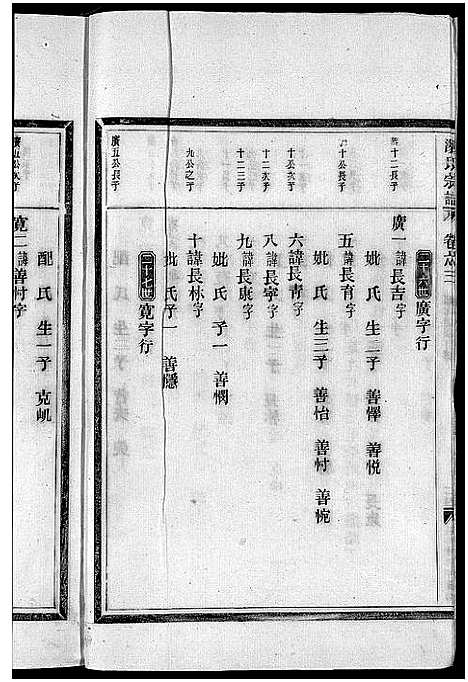 宗譜 卷 三
二十六世 廣字行
十二長子
廣一 諱長吉字
妣 氏 生二子 善懌 善悦
十公長子
五諱長育字
妣 氏 生三子 善怡 善忖 善惋
十公次子
六諱長靑字
十二次子
八諱長寧字
十二三子
九諱長康字
妣 氏 子一 善憫
九公之子
十諱長林字
妣 氏 子一 善隱
二十七世 寛字行
廣五公長子
廣五公次子
寛二 諱善忖字
配 氏 生一子 克㞦